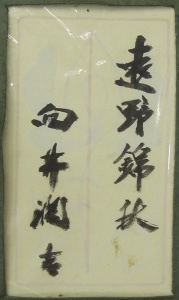 遠野錦秋
向井潤吉